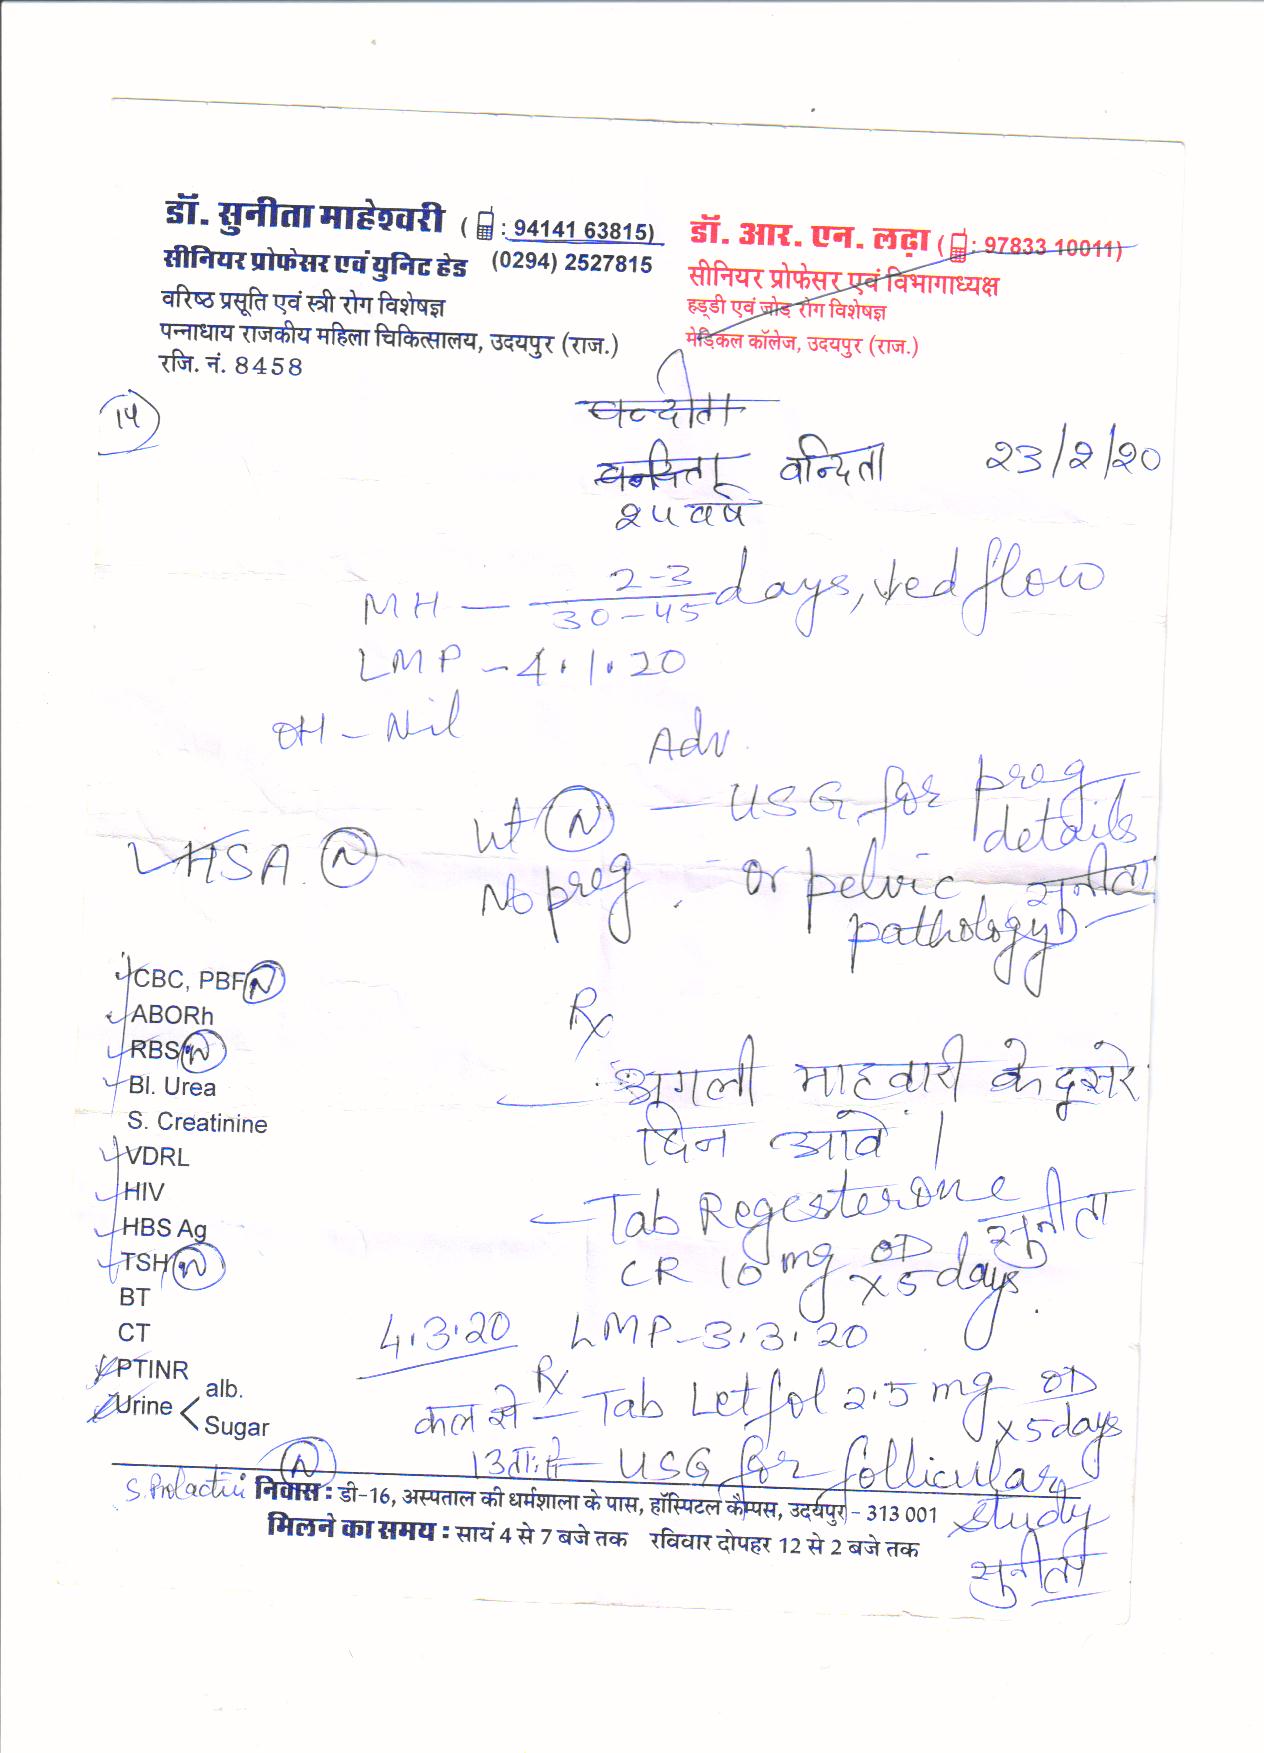 डॉ. सुनीता माहेश्वरी (: 94141 63815)
सीनियर प्रोफेसर एवं युनिट हेड (0294) 2527815
वरिष्ठ प्रसूति एवं स्त्री रोग विशेषज्ञ
पन्नाधाय राजकीय महिला चिकित्सालय, उदयपुर (राज.)
रजि. नं. 8458
डॉ. आर. एन. लढ़ा (: 97833 10011)
सीनियर प्रोफेसर एवं विभागाध्यक्ष
हड्डी एवं जोड़ रोग विशेषज्ञ
मेडिकल कॉलेज, उदयपुर (राज.)
14
वन्दिता 23/2/20
२५ वर्ष
MH - 2-3/30-45 days, ↓ed flow
LMP - 4.1.20
OH - Nil
Adv.
Ut N - USG for preg details
HSA N
No preg. - or pelvic pathology सुनीता
CBC, PBF N
ABORh
RBS N
Bl. Urea
S. Creatinine
VDRL
HIV
HBS Ag
TSH N
BT
CT
PTINR
Urine < alb.
Sugar
S. Prolactin N
Rx
- अगली माहवारी के दूसरे
दिन आवें।
- Tab Regesterone
CR 10 mg OD x 5 days.
सुनीता
4.3.20 LMP - 3.3.20
Rx
कल से - Tab Letfol 2.5 mg OD
x 5 days
13 ता. से - USG for follicular
study
सुनीता
निवास : डी-16, अस्पताल की धर्मशाला के पास, हॉस्पिटल कैम्पस, उदयपुर - 313 001
मिलने का समय : सायं 4 से 7 बजे तक रविवार दोपहर 12 से 2 बजे तक